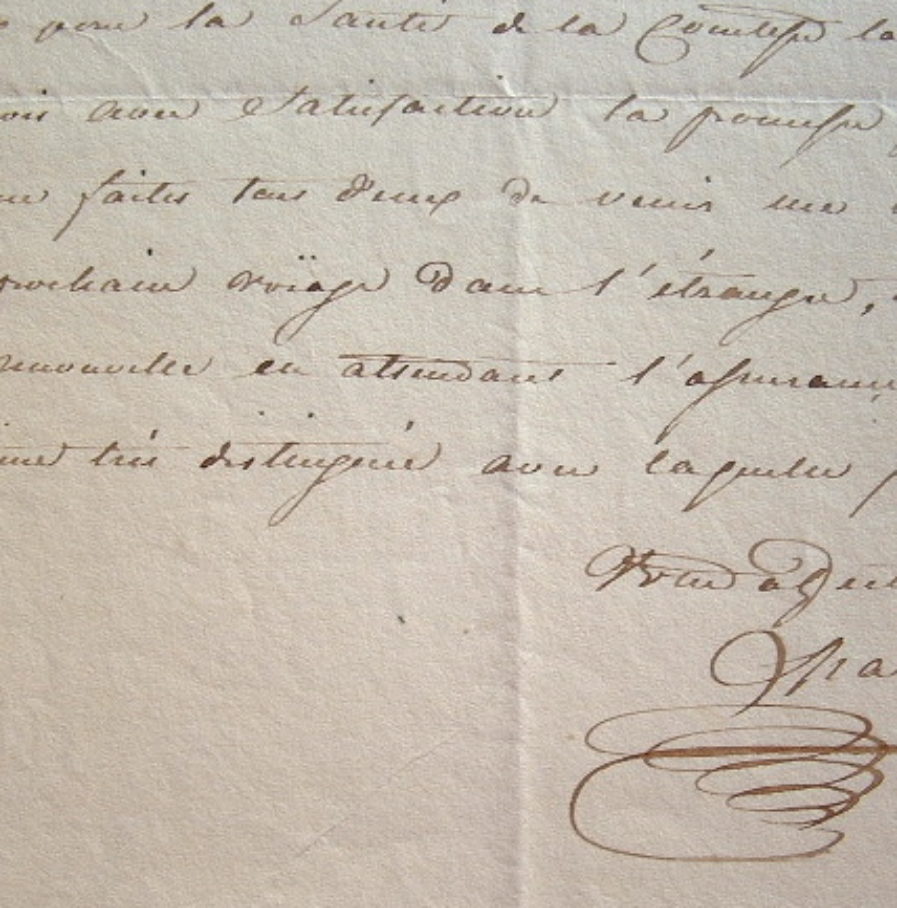 pour la Santé de la Comtesse la
avec Satisfaction la promesse
faites tous deux de venir me
prochain voïage dans l'étranger,
renouveller en attendant l'assurance
très distinguée avec laquelle
Votre